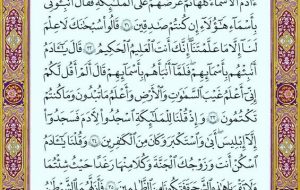 ءَادَمَ الْأَسْمَاءَ كُلَّهَا ثُمَّ عَرَضَهُمْ عَلَى الْمَلَٰٓئِكَةِ فَقَالَ أَنبِـُٔونِى
بِأَسْمَآءِ هَٰٓؤُلَآءِ إِن كُنتُمْ صَٰدِقِينَ ٣١ قَالُوا۟ سُبْحَٰنَكَ لَا عِلْمَ
لَنَآ إِلَّا مَا عَلَّمْتَنَآ إِنَّكَ أَنتَ الْعَلِيمُ الْحَكِيمُ ٣٢ قَالَ يَٰٓـَٔادَمُ
أَنۢبِئْهُم بِأَسْمَآئِهِمْ فَلَمَّآ أَنۢبَأَهُم بِأَسْمَآئِهِمْ قَالَ أَلَمْ أَقُل لَّكُمْ
إِنِّىٓ أَعْلَمُ غَيْبَ السَّمَٰوَٰتِ وَالْأَرْضِ وَأَعْلَمُ مَا تُبْدُونَ وَمَا كُنتُمْ
تَكْتُمُونَ ٣٣ وَإِذْ قُلْنَا لِلْمَلَٰٓئِكَةِ اسْجُدُوا۟ لِـَٔادَمَ فَسَجَدُوٓا۟
إِلَّآ إِبْلِيسَ أَبَىٰ وَاسْتَكْبَرَ وَكَانَ مِنَ الْكَٰفِرِينَ ٣٤ وَقُلْنَا يَٰٓـَٔادَمُ
اسْكُنْ أَنتَ وَزَوْجُكَ الْجَنَّةَ وَكُلَا مِنْهَا رَغَدًا حَيْثُ شِئْتُمَا
وَلَا تَقْرَبَا هَٰذِهِ الشَّجَرَةَ فَتَكُونَا مِنَ الظَّٰلِمِينَ ٣٥ فَأَزَلَّهُمَا الشَّيْطَٰنُ